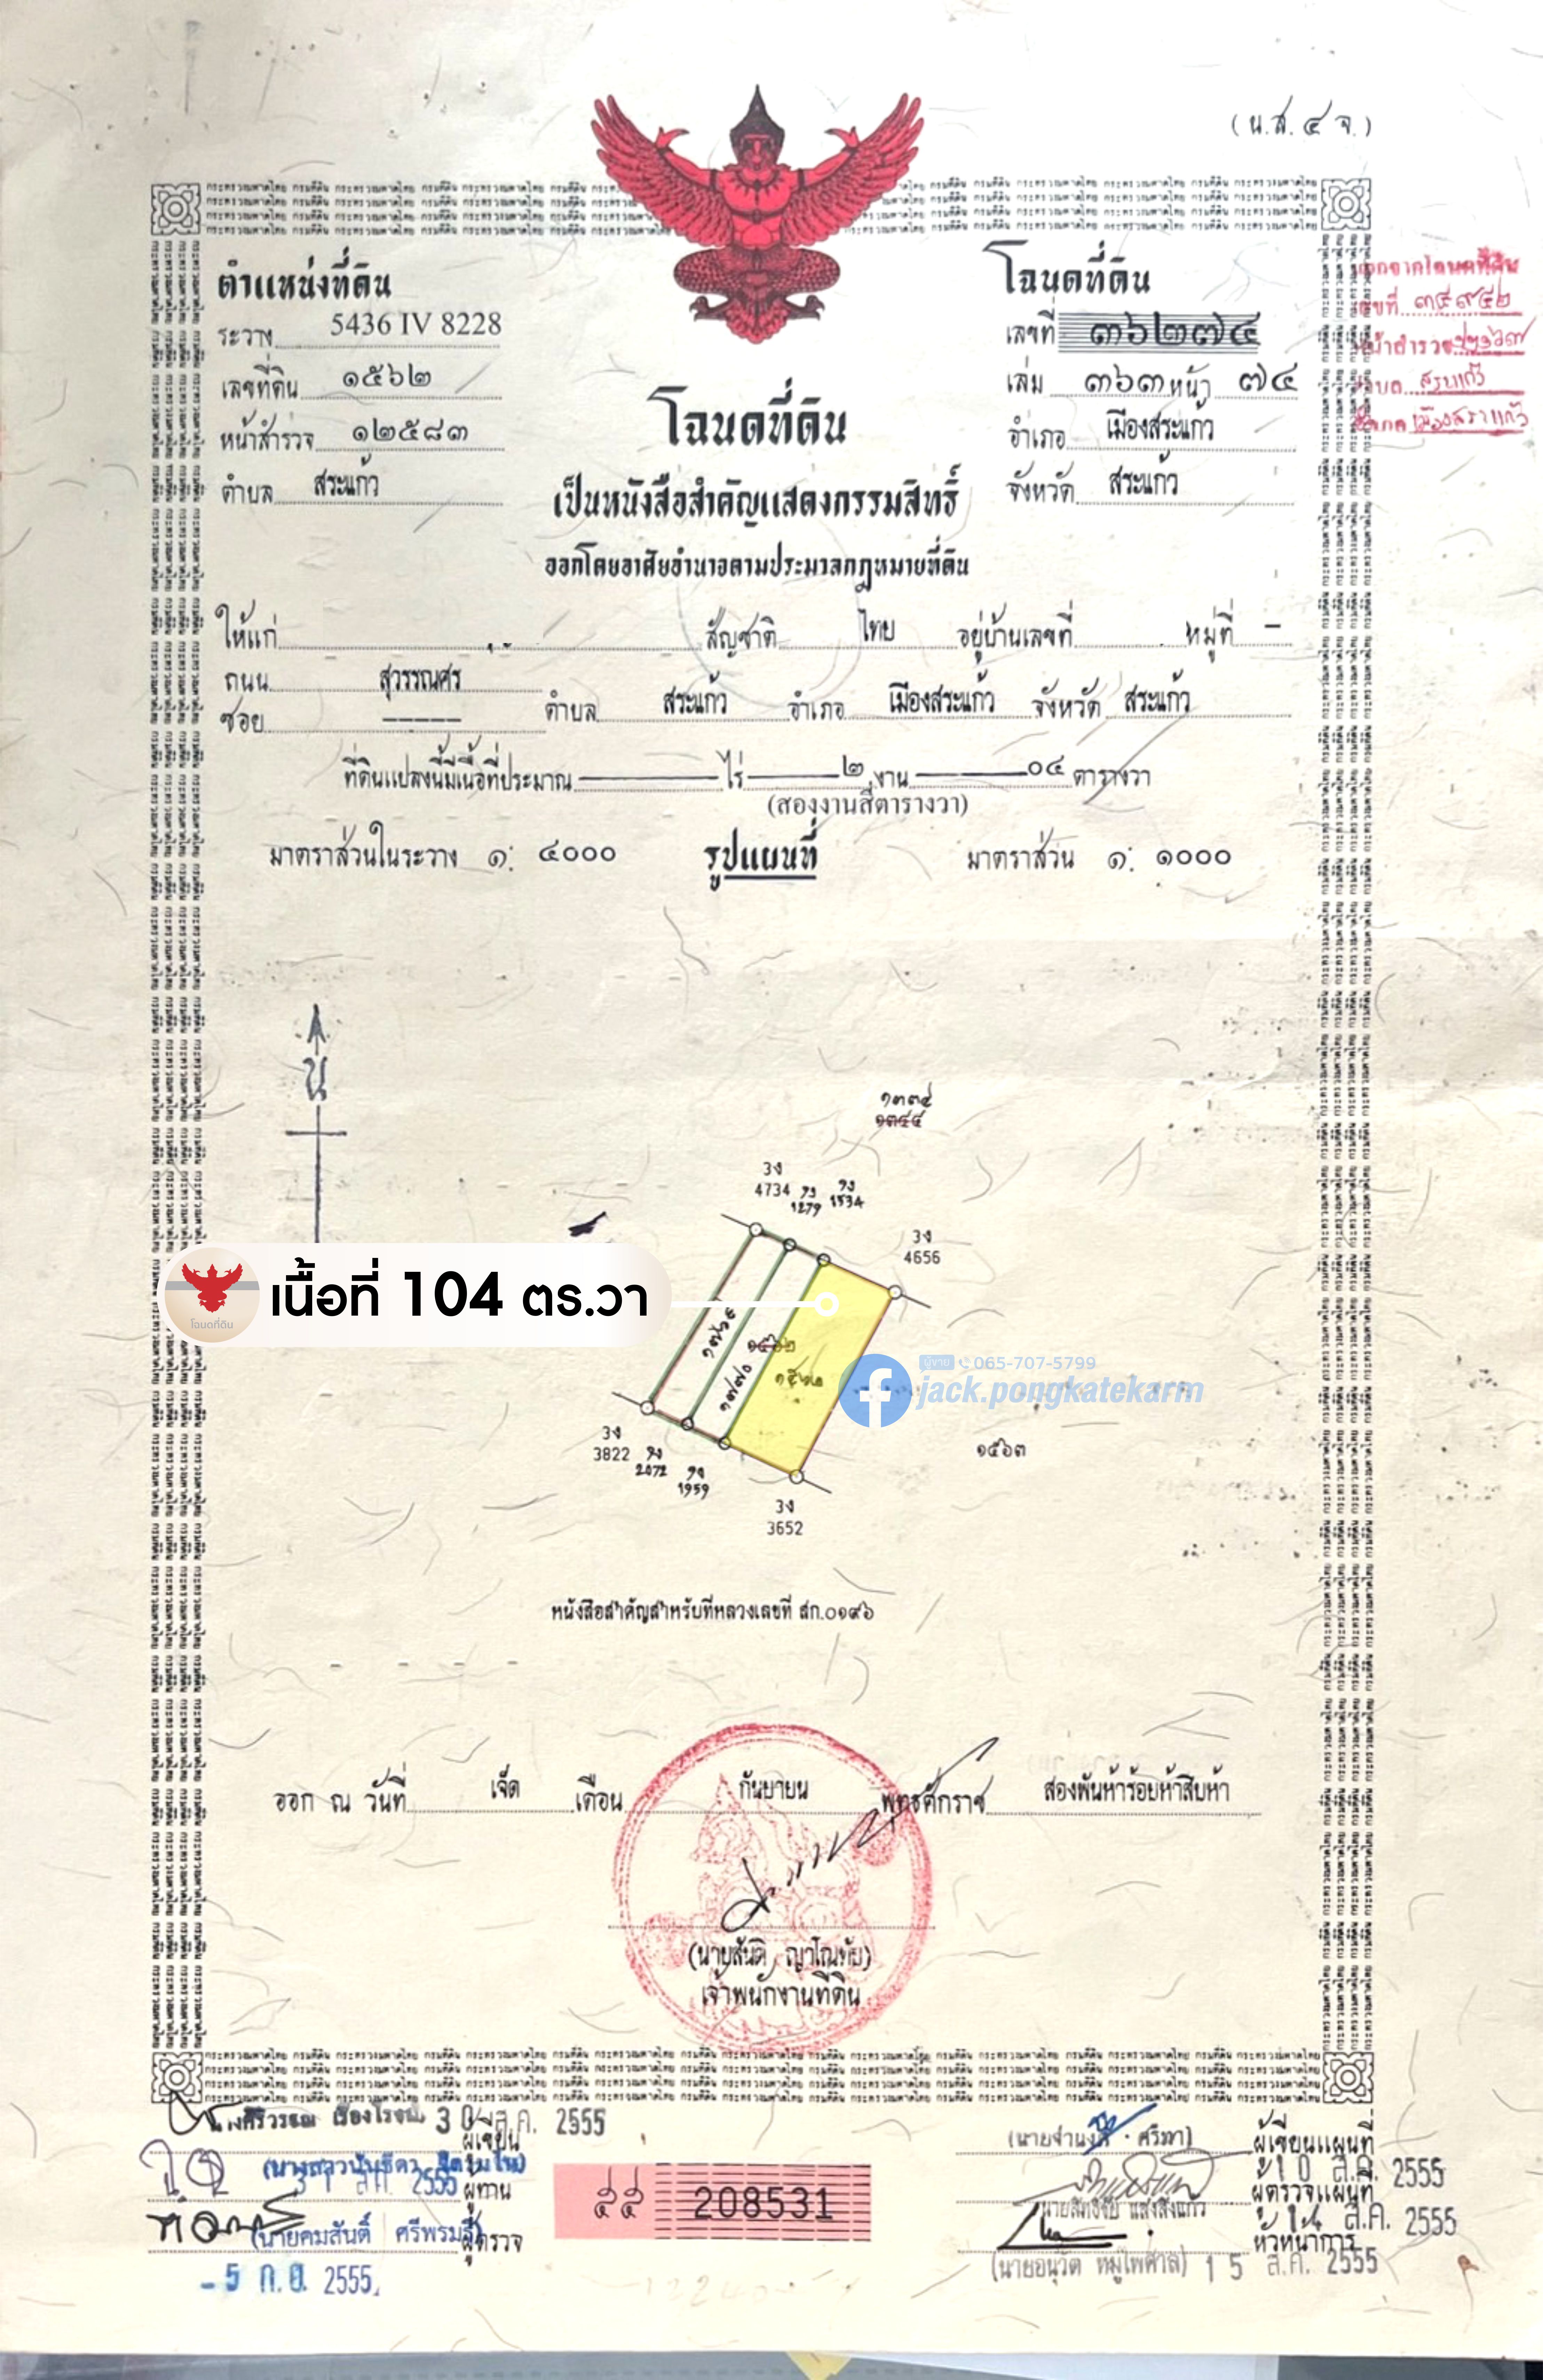 (น.ส. ๔ จ.)
ตำแหน่งที่ดิน
ระวาง 5436 IV 8228
เลขที่ดิน ๑๕๖๒
หน้าสำรวจ ๑๒๕๘๓
ตำบล สระแก้ว
โฉนดที่ดิน
เลขที่ ๓๖๒๗๔
เล่ม ๓๖๓ หน้า ๗๔
อำเภอ เมืองสระแก้ว
จังหวัด สระแก้ว
โฉนดที่ดิน
เป็นหนังสือสำคัญแสดงกรรมสิทธิ์
ออกโดยอาศัยอำนาจตามประมวลกฎหมายที่ดิน
ออกจากโฉนดที่ดิน
เลขที่
หน้าสำรวจ
ตำบล สระแก้ว
อำเภอ เมืองสระแก้ว
ให้แก่ สัญชาติ ไทย อยู่บ้านเลขที่ หมู่ที่ –
ถนน สุวรรณศร
ซอย ----- ตำบล สระแก้ว อำเภอ เมืองสระแก้ว จังหวัด สระแก้ว
ที่ดินแปลงนี้มีเนื้อที่ประมาณ ไร่ ๒ งาน ๐๔ ตารางวา
(สองงานสี่ตารางวา)
มาตราส่วนในระวาง ๑: ๔๐๐๐ รูปแผนที่ มาตราส่วน ๑: ๑๐๐๐
น
๑๓๔๔
3ง
4734
1279
1534
3ง
4656
โฉนดที่ดิน
เนื้อที่ 104 ตร.วา
๑๗๖๙
๑๕๖๒
๑๗๗๐
๑๕๖๒
ผู้ขาย 065-707-5799
jack.pongkatekarm
๑๕๖๓
3ง
3822
2072
1959
3ง
3652
หนังสือสำคัญสำหรับที่หลวงเลขที่ สก.๐๑๙๖
ออก ณ วันที่ เจ็ด เดือน กันยายน พุทธศักราช สองพันห้าร้อยห้าสิบห้า
(นายสันติ ญาโณทัย)
เจ้าพนักงานที่ดิน
30 ส.ค. 2555
ผู้เขียน
31 ส.ค. 2555 ผู้ทาน
(นายคมสันติ์ ศรีพรมธี) ผู้ตรวจ
- 5 ก.ย. 2555
๕๕ 208531
ผู้เขียนแผนที่
10 ส.ค. 2555
ผู้ตรวจแผนที่
14 ส.ค. 2555
หัวหน้าการ
(นายอนุวัต หมู่ไพศาล) 15 ส.ค. 2555